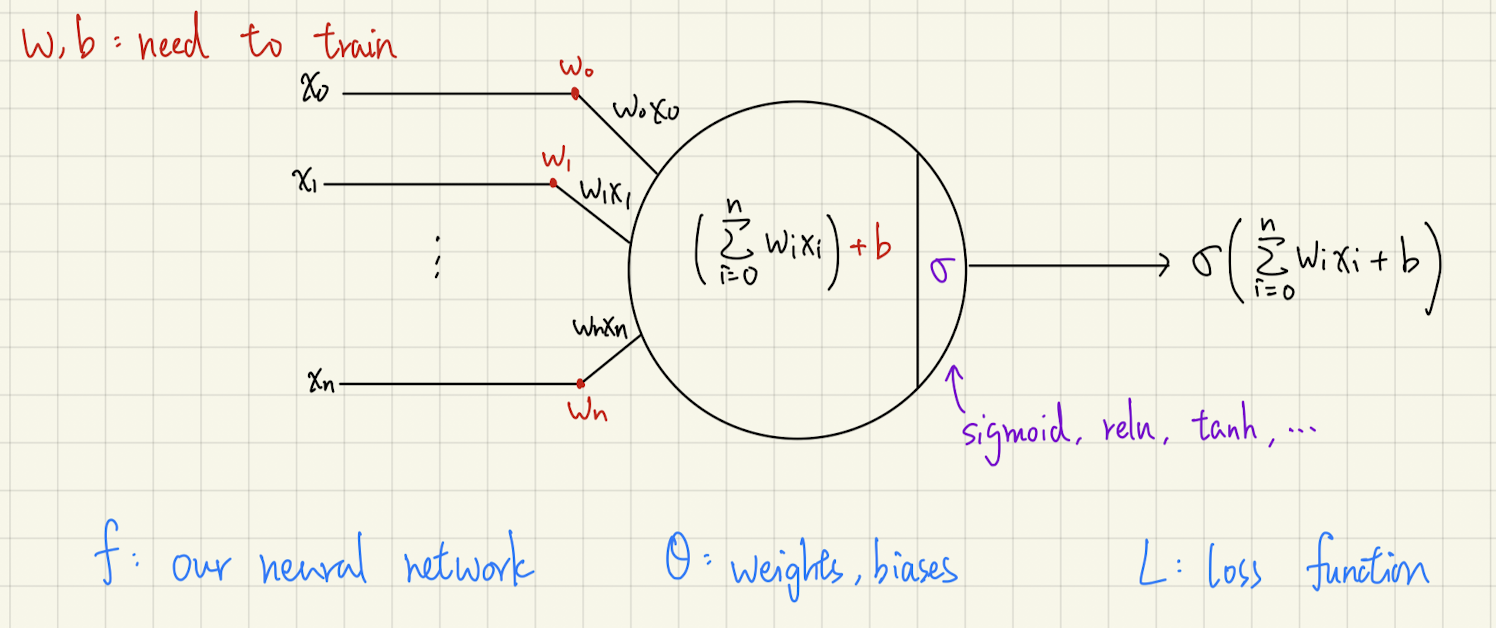 W, b : need to train
x₀
w₀
w₀x₀
x₁
w₁
w₁x₁
⋮
xₙ
wₙ
wₙxₙ
(∑ᵢ₌₀ⁿ wᵢxᵢ) + b
σ
σ(∑ᵢ₌₀ⁿ wᵢxᵢ + b)
sigmoid, relu, tanh, ...
f : our neural network
θ : weights, biases
L : loss function